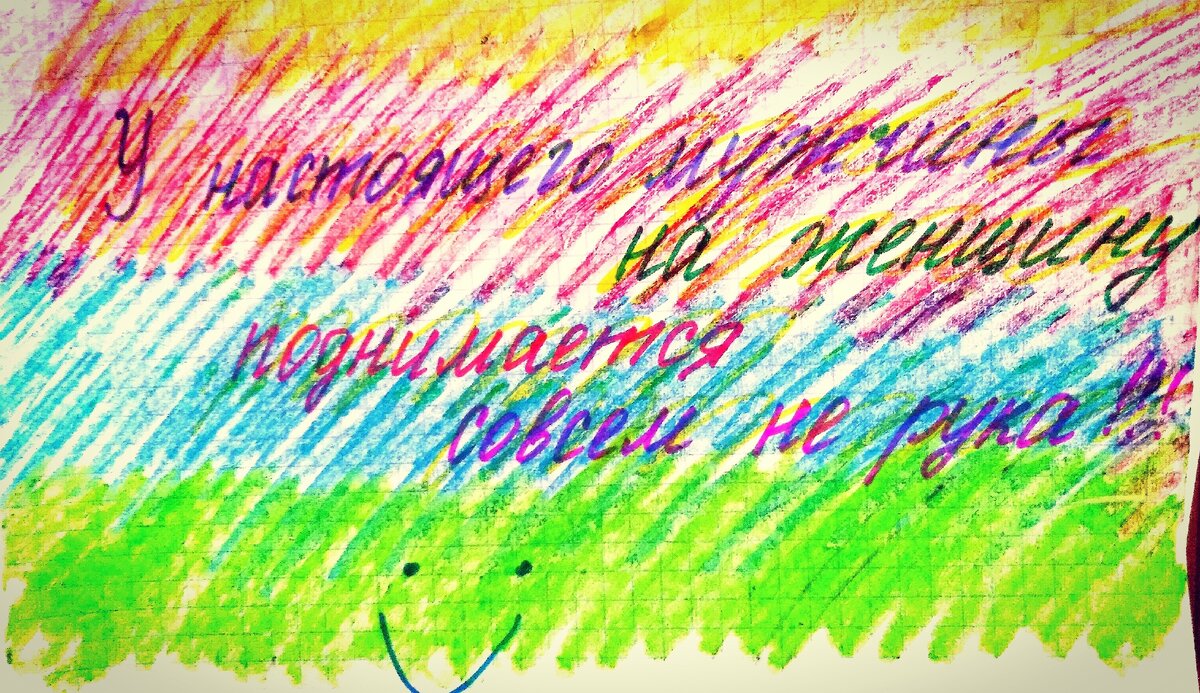 У настоящего мужчины
на женщину
поднимается
совсем не рука!!!